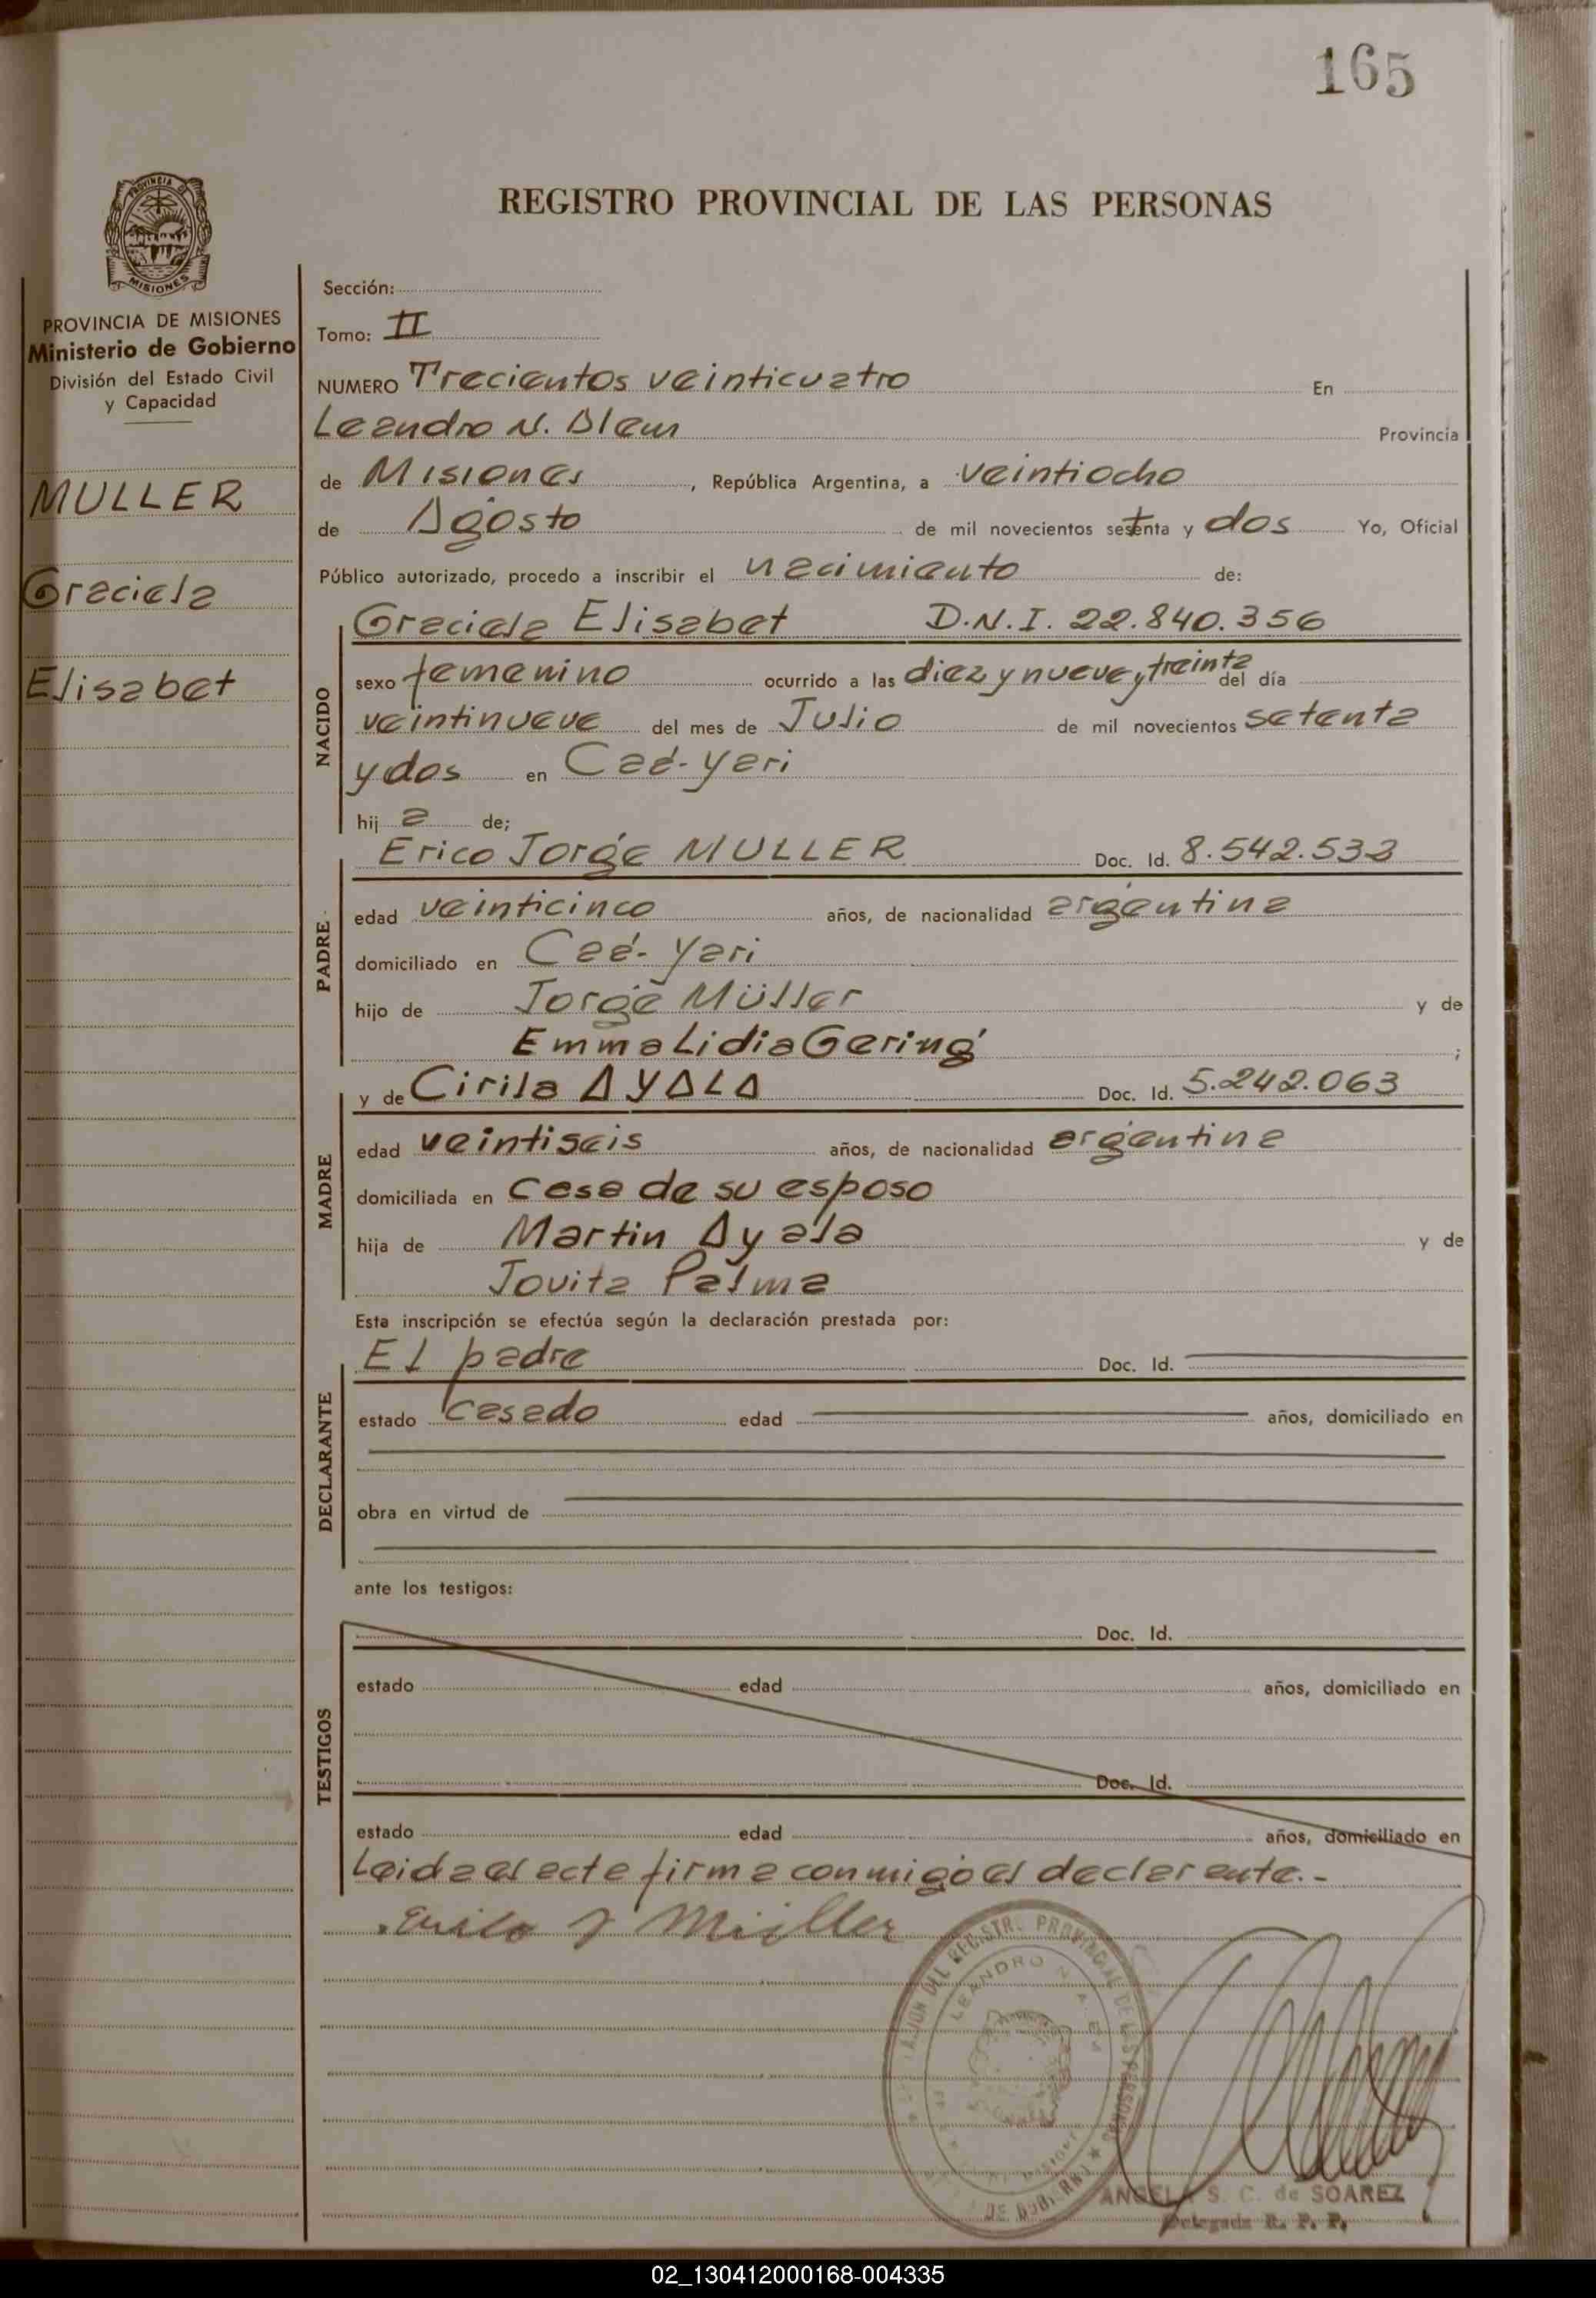 165
PROVINCIA DE
MISIONES
REGISTRO PROVINCIAL DE LAS PERSONAS
PROVINCIA DE MISIONES
Ministerio de Gobierno
División del Estado Civil
y Capacidad
MULLER
Graciela
Elisabet
Sección:
Tomo: II
NUMERO Trecientos veinticuatro En
Leandro N. Alem Provincia
de Misiones, República Argentina, a veintiocho
de Agosto de mil novecientos setenta y dos Yo, Oficial
Público autorizado, procedo a inscribir el nacimiento de:
NACIDO
Graciela Elisabet D.N.I. 22.840.356
sexo femenino ocurrido a las diez y nueve y treinta del día
veintinueve del mes de Julio de mil novecientos setenta
y dos en Caá-Yari
hij a de;
PADRE.
Erico Jorge MULLER Doc. Id. 8.542.533
edad veinticinco años, de nacionalidad argentina
domiciliado en Caá-Yari
hijo de Jorge Müller y de
Emma Lidia Gering ;
MADRE
y de Cirila AYALA Doc. Id. 5.242.063
edad veintiseis años, de nacionalidad argentina
domiciliada en casa de su esposo
hija de Martin Ayala y de
Jovita Palma
Esta inscripción se efectúa según la declaración prestada por:
DECLARANTE
El padre Doc. Id.
estado casado edad años, domiciliado en
obra en virtud de
ante los testigos:
TESTIGOS
Doc. Id.
estado edad años, domiciliado en
Doc. Id.
estado edad años, domiciliado en
Leida el acta firma conmigo el declarante.-
Erico J Müller
DEL REGISTR. PROVINCIAL DE LAS PERSONAS
LEANDRO N. ALEM
ANGELA S. C. de SOAREZ
Delegada R. P. P.
02_130412000168-004335